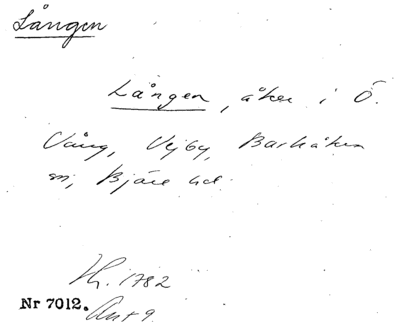 Lången
Lången, åker i Ö.
Vång, Vejby, Barkåkra
sn, Bjäre hd.
H. 1782
Nr 7012. Ant 9